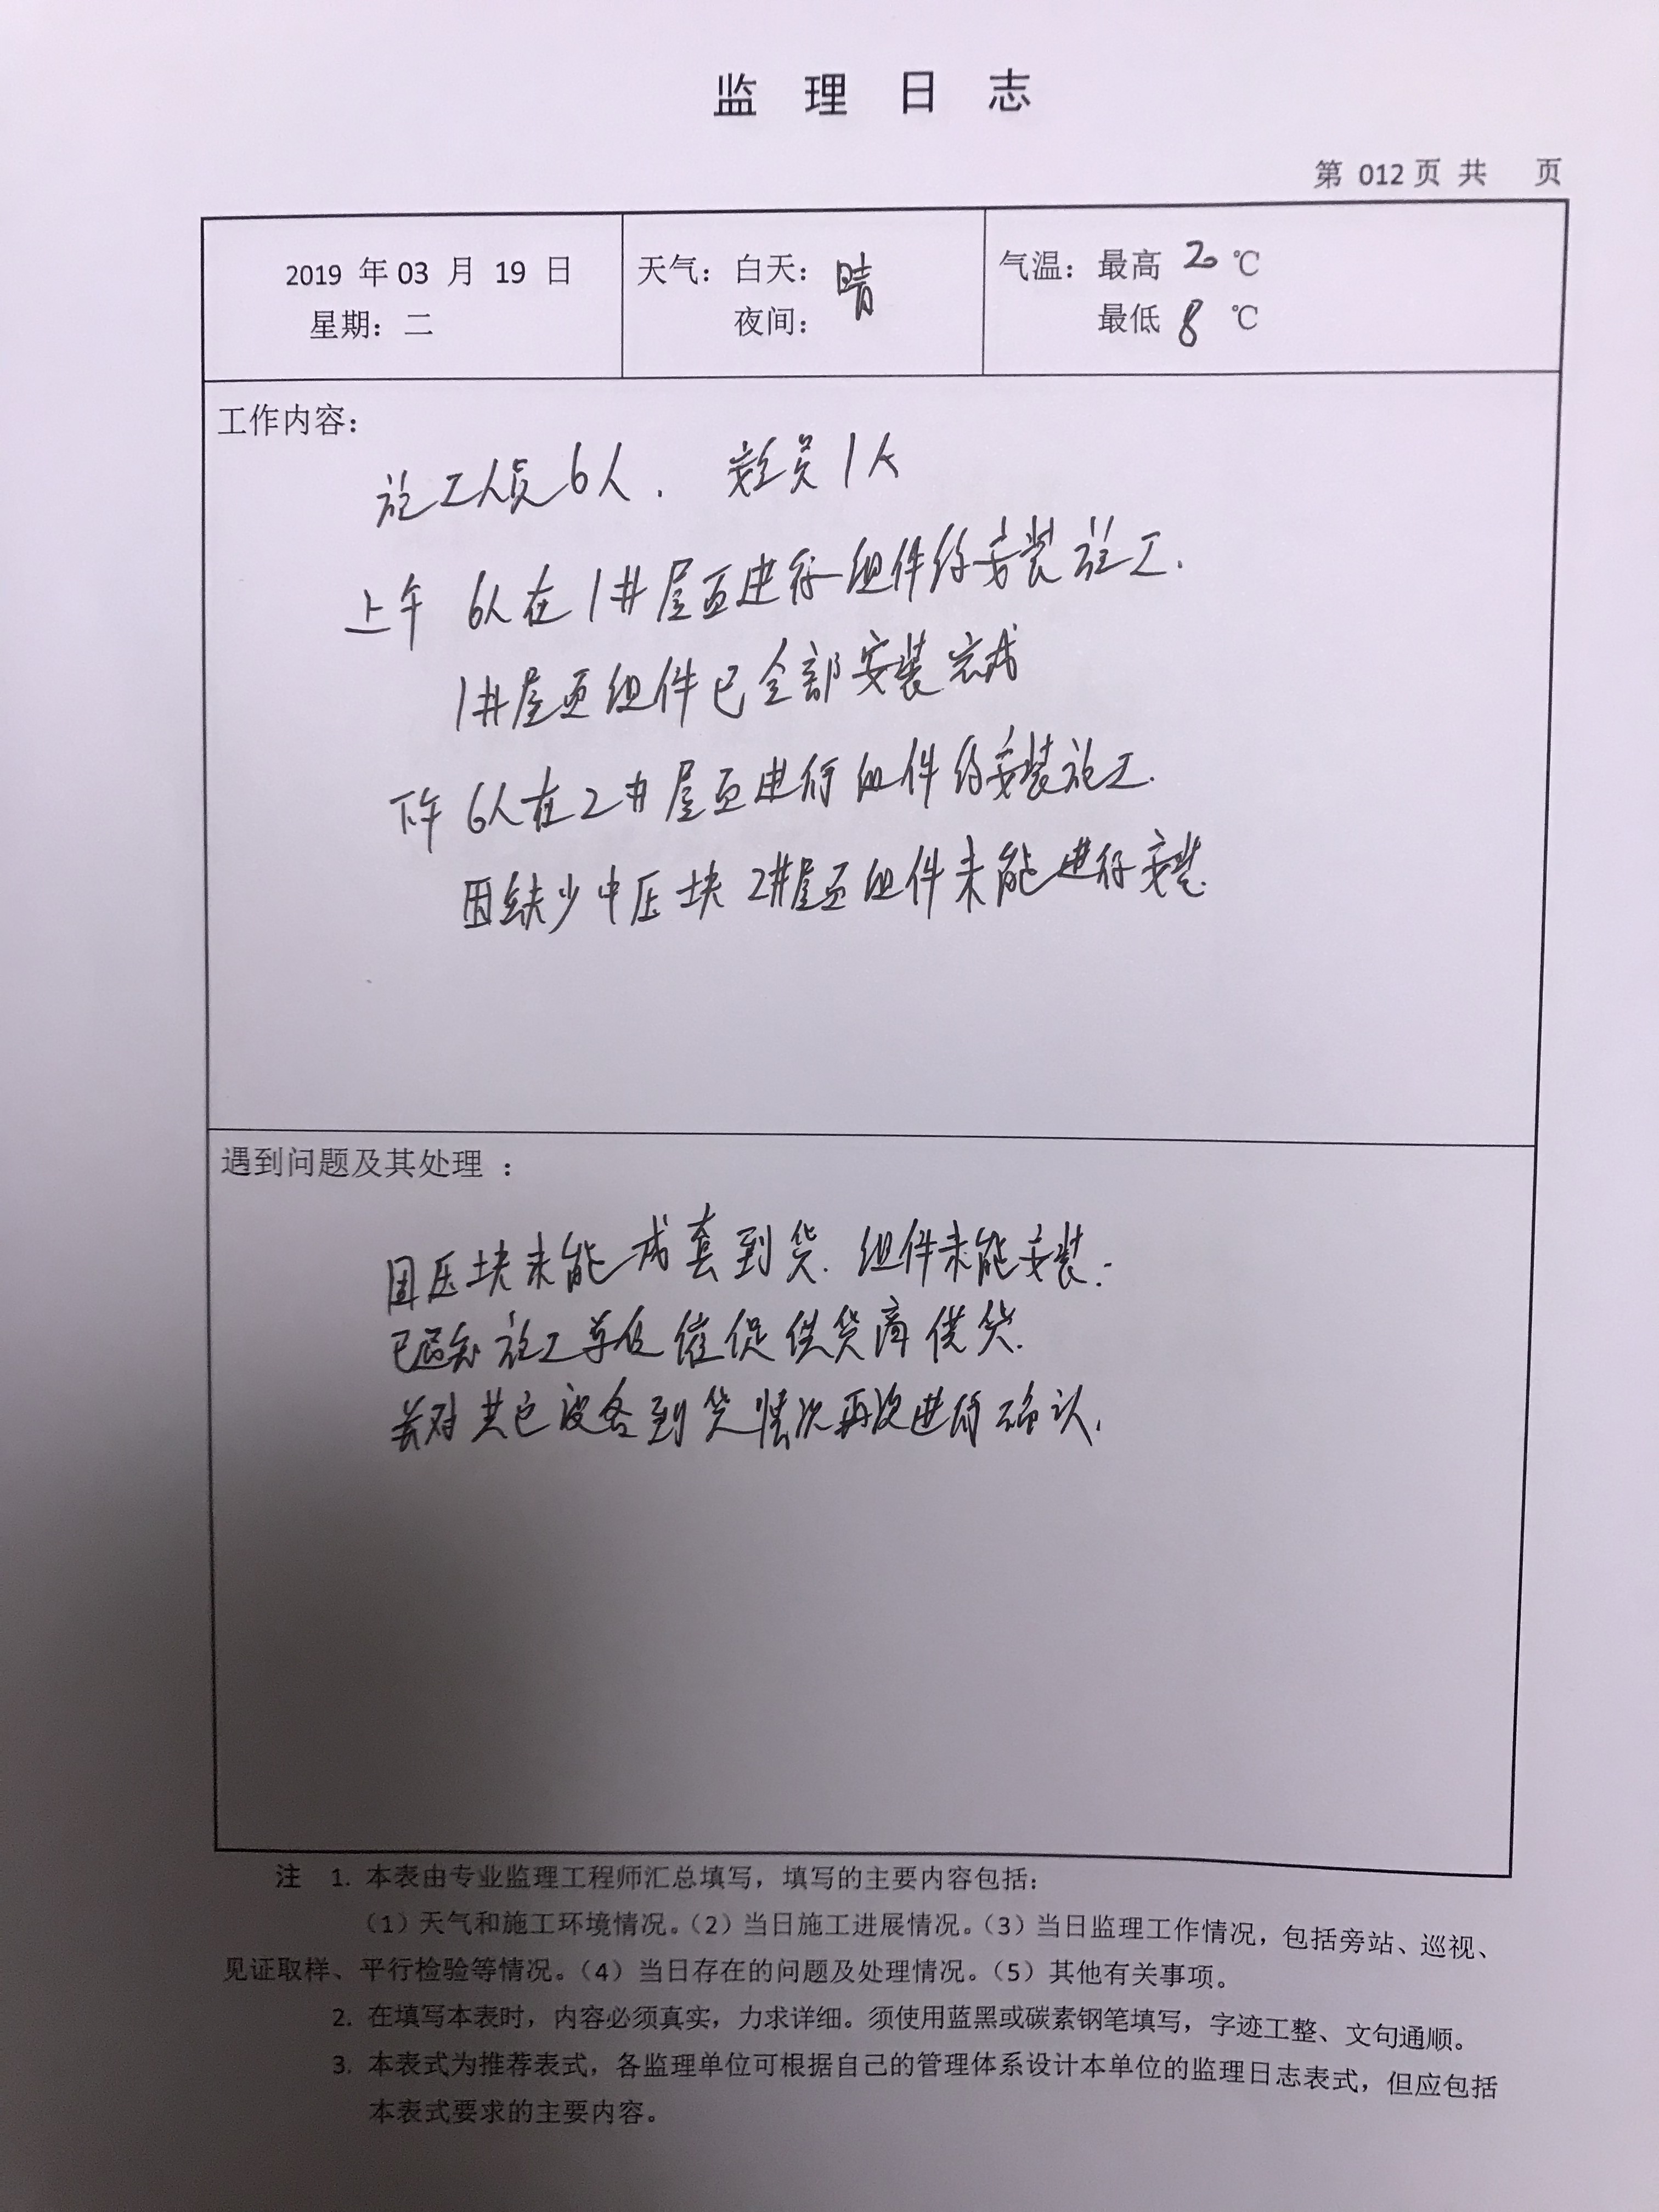 监 理 日 志
第 012 页 共 页
2019 年 03 月 19 日
星期：二
天气：白天：晴
夜间：
气温：最高 20 ℃
最低 8 ℃
工作内容：
施工人员6人. 安全员1人
上午 6人在1#屋面进行组件的安装施工.
1#屋面组件已全部安装完成
下午 6人在2#屋面进行组件的安装施工.
因缺少中压块 2#屋面组件未能进行安装.
遇到问题及其处理 ：
因压块未能成套到货. 组件未能安装.
已通知施工单位催促供货商供货.
并对其它设备到货情况再次进行确认.
注 1. 本表由专业监理工程师汇总填写，填写的主要内容包括：
（1）天气和施工环境情况。（2）当日施工进展情况。（3）当日监理工作情况，包括旁站、巡视、
见证取样、平行检验等情况。（4）当日存在的问题及处理情况。（5）其他有关事项。
2. 在填写本表时，内容必须真实，力求详细。须使用蓝黑或碳素钢笔填写，字迹工整、文句通顺。
3. 本表式为推荐表式，各监理单位可根据自己的管理体系设计本单位的监理日志表式，但应包括
本表式要求的主要内容。